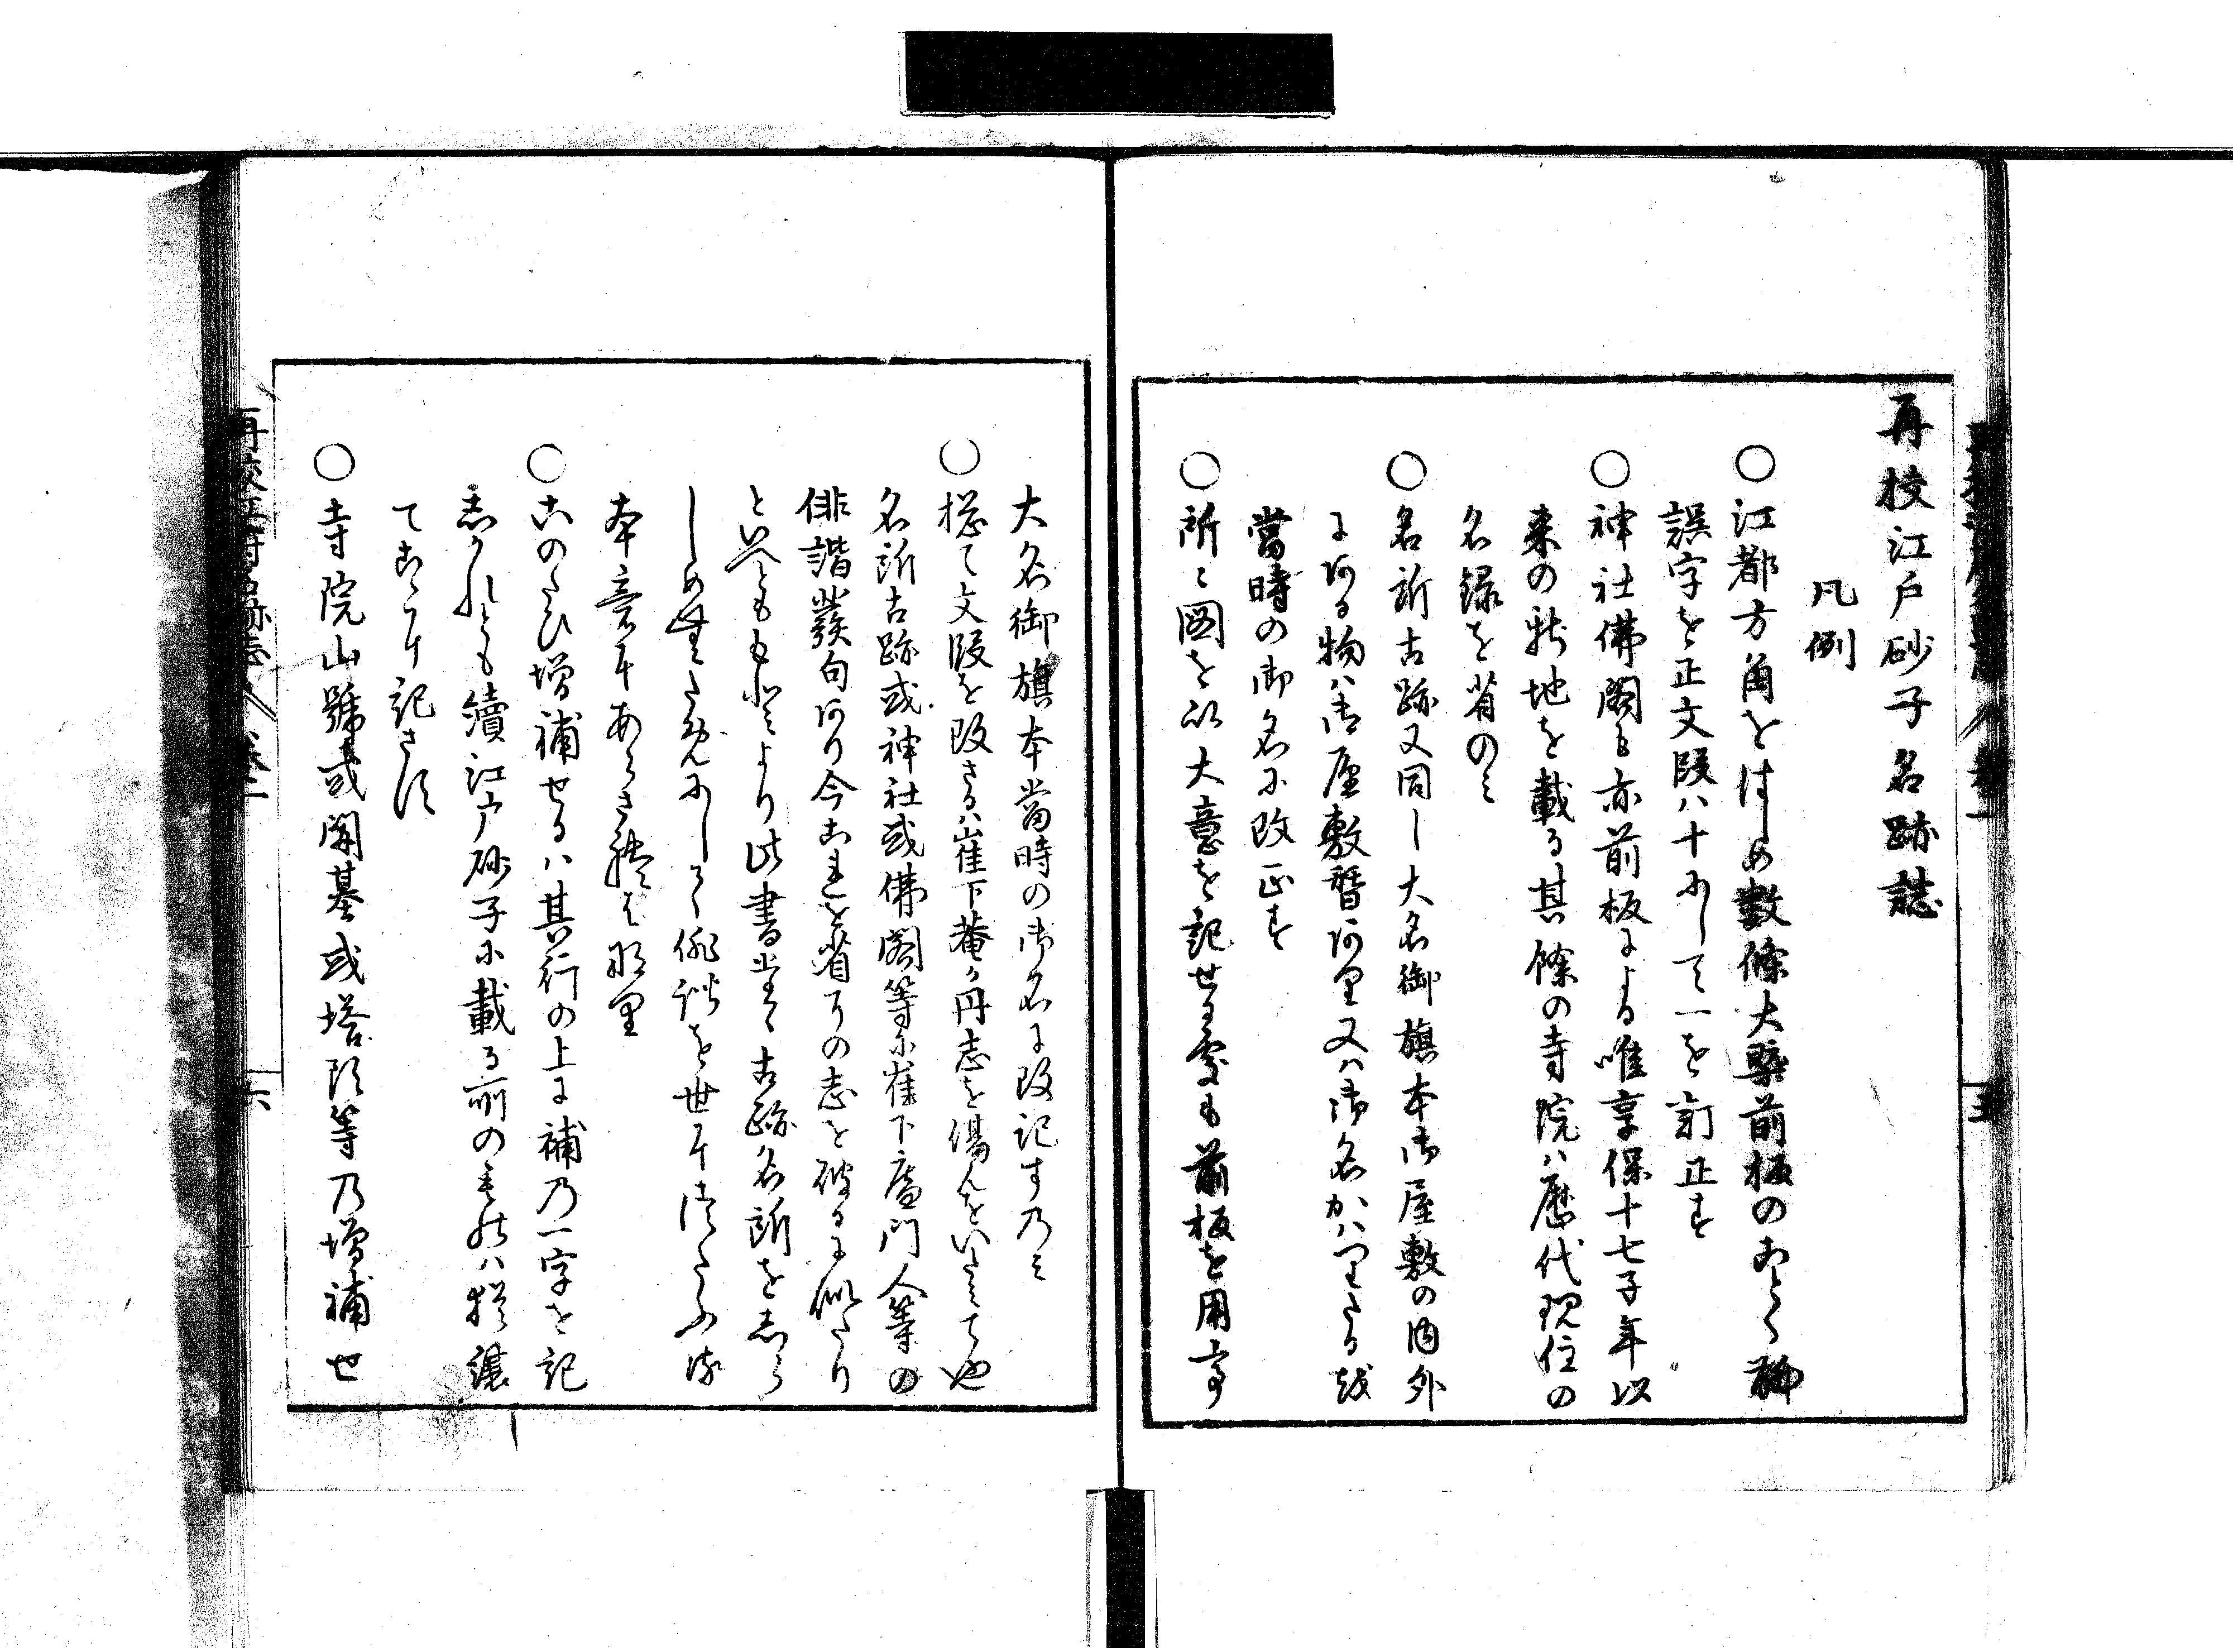 再校江戸砂子名跡誌
凡例
○江都方角をはしめ數條大槩前板のあとく
誤字を正文段ハ十にして一を訂正す
○神社佛閣も亦前板による唯享保十七子年以
来の新地を載る其餘の寺院ハ歴代現住の
名録を省のミ
○名所古跡又同し大名御旗本御屋敷の内外
にある物ハ御屋敷替あり又ハ御名かハりたる越
當時の御名に改正す
○所々図を以大意を記せる處も前板を用亨
大名御旗本當時の御名に改記すのミ
○惣て文段を改さるハ崔下菴か丹志を傷んをいたミて也
名所古跡或神社或佛閣等に崔下庵門人等の
俳諧發句あり今これを省りの志を破るに似たり
といへとももとより此書望て古跡名所をしら
しめむためにして俳諧を世につたふる
本意にあらされはなり
○このたひ増補せるハ其行の上に補乃一字を記
しかれとも續江戸砂子に載る前のもれハ猶讓
てこゝに記さす
○寺院山號或開基或塔頭等乃増補せ
再校江府名跡志 巻一
六
五